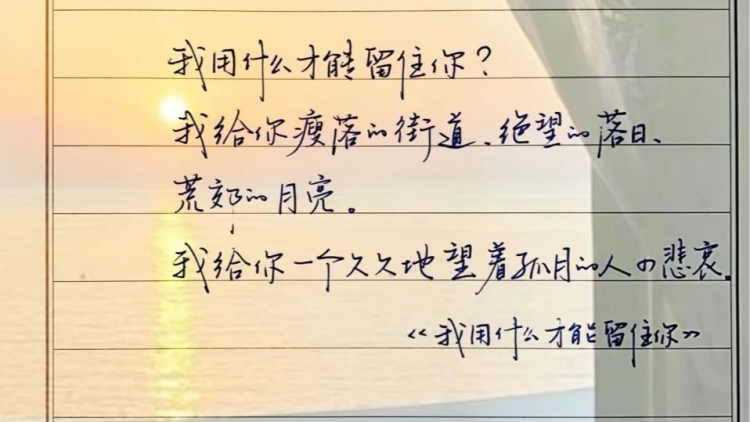 我用什么才能留住你？
我给你瘦落的街道、绝望的落日、
荒郊的月亮。
我给你一个久久地望着孤月的人の悲哀。
《我用什么才能留住你》